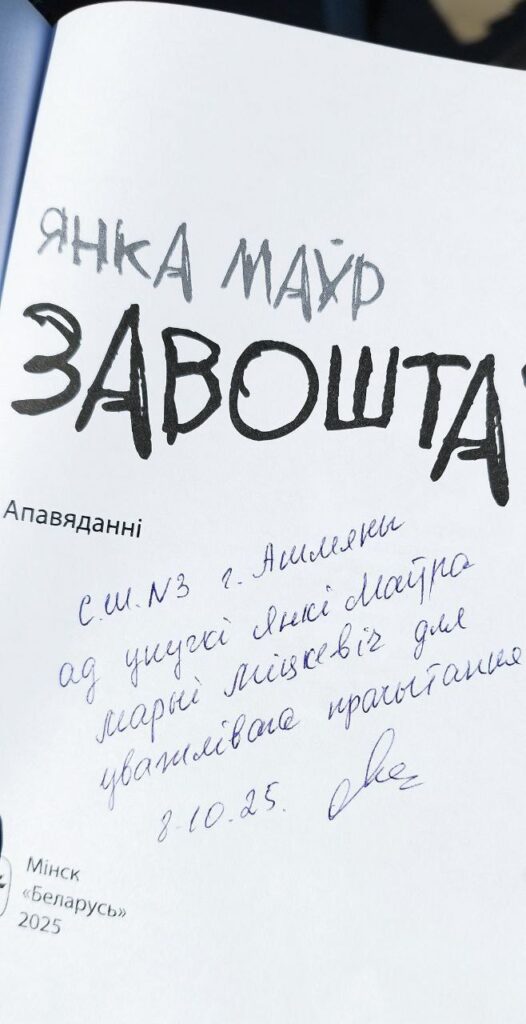 ЯНКА МАЎР
ЗАВОШТА
Апавяданні
С.Ш. N3 г. Ашмяны
ад унучкі Янкі Маўра
Марыі Міцкевіч для
уважлівага прачытання
8.10.25.
Мінск
«Беларусь»
2025